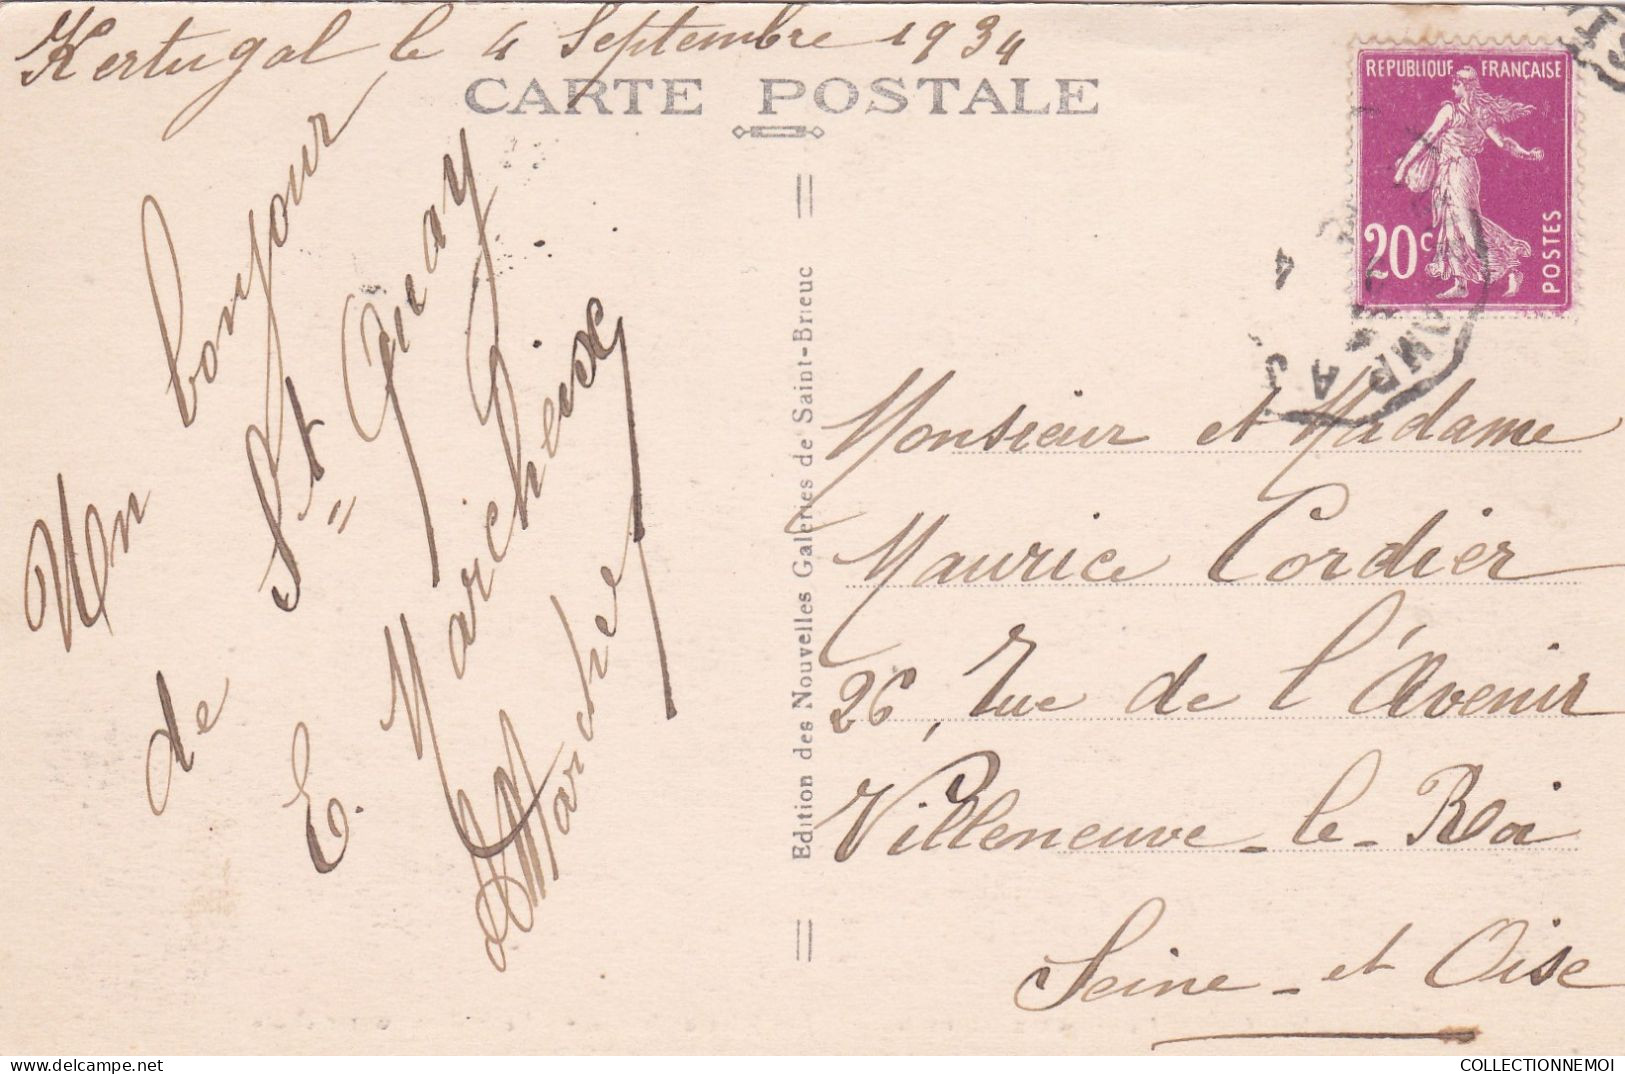 Kertugal le 4 Septembre 1934
CARTE POSTALE
REPUBLIQUE FRANÇAISE
20c
POSTES
Un bonjour
de St Quay
E. Marcheix
Edition des Nouvelles Galeries de Saint-Brieuc
Monsieur et Madame
Maurice Cordier
26, rue de l'Avenir
Villeneuve-le-Roi
Seine-et Oise
COLLECTIONNEMOI